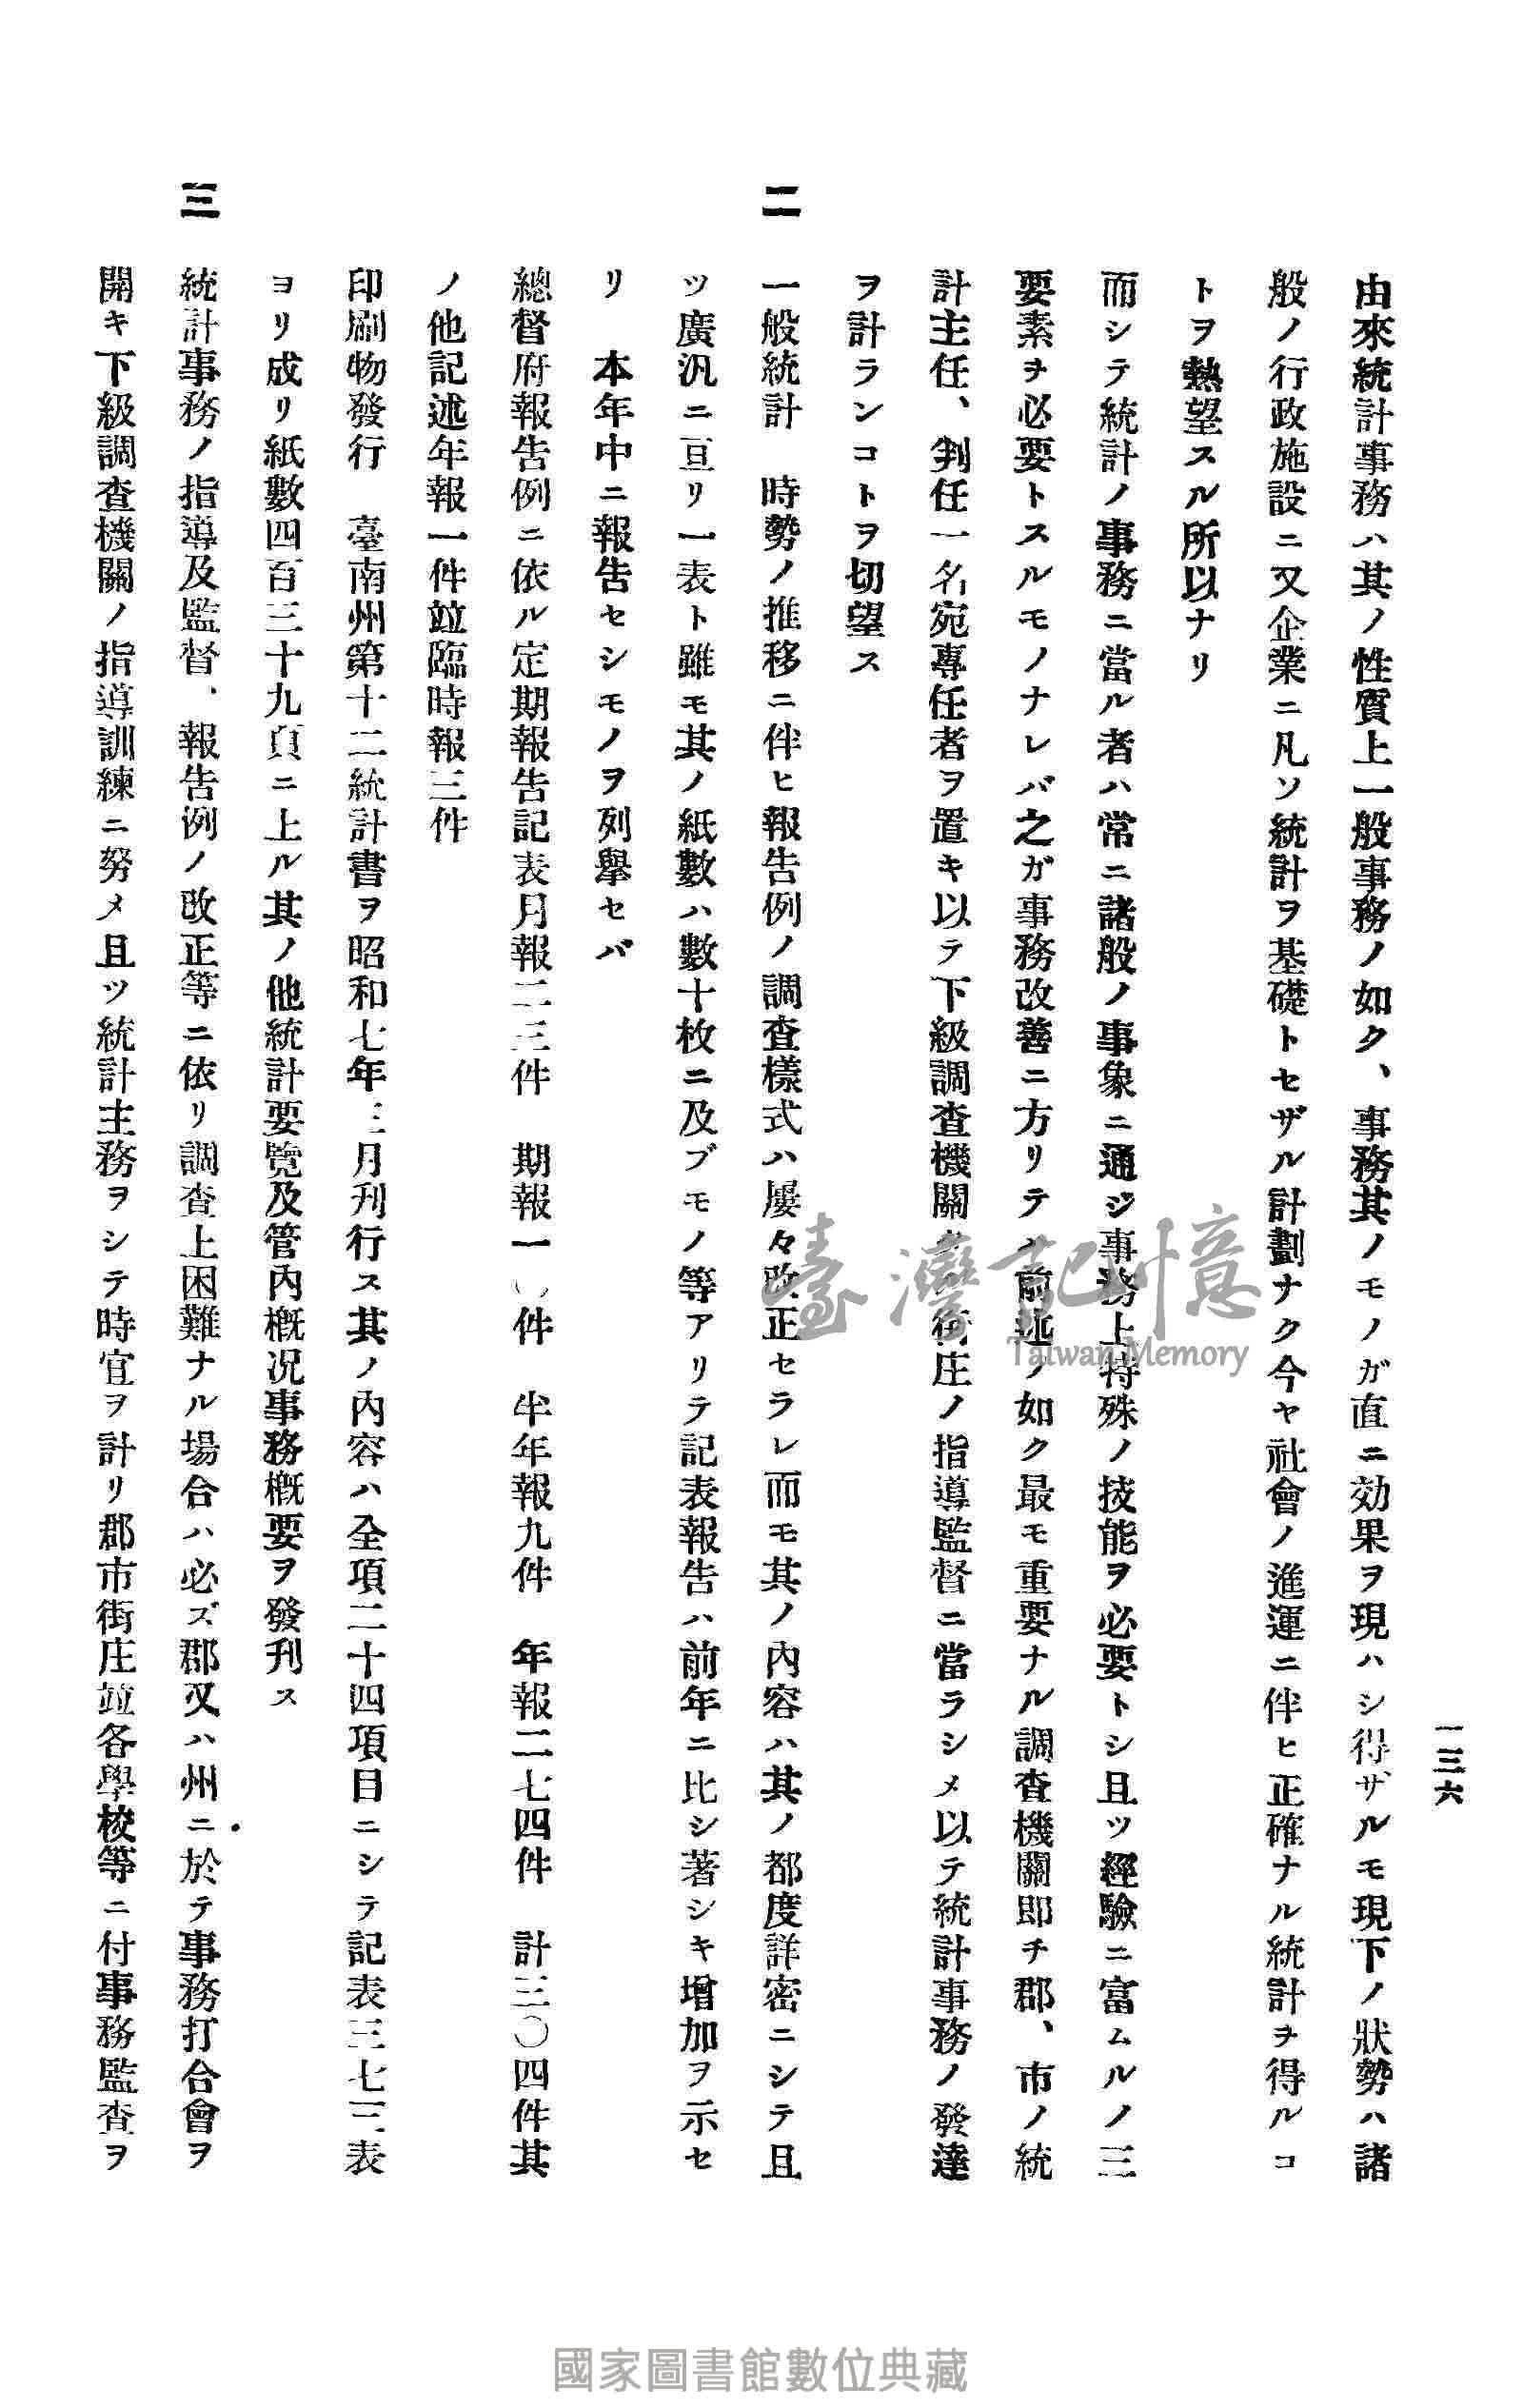 一三六
由來統計事務ハ其ノ性質上一般事務ノ如ク、事務其ノモノガ直ニ効果ヲ現ハシ得ザルモ現下ノ狀勢ハ諸
般ノ行政施設ニ又企業ニ凡ソ統計ヲ基礎トセザル計劃ナク今ヤ社會ノ進運ニ伴ヒ正確ナル統計ヲ得ルコ
トヲ熱望スル所以ナリ
而シテ統計ノ事務ニ當ル者ハ常ニ諸般ノ事象ニ通ジ事務上特殊ノ技能ヲ必要トシ且ツ經驗ニ富ムルノ三
要素ヲ必要トスルモノナレバ之ガ事務改善ニ方リテハ前述ノ如ク最モ重要ナル調査機關即チ郡、市ノ統
計主任、判任一名宛專任者ヲ置キ以テ下級調査機關タル街庄ノ指導監督ニ當ラシメ以テ統計事務ノ發達
ヲ計ランコトヲ切望ス
二 一般統計 時勢ノ推移ニ伴ヒ報告例ノ調査樣式ハ屢々改正セラレ而モ其ノ內容ハ其ノ都度詳密ニシテ且
ツ廣汎ニ亘リ一表ト雖モ其ノ紙數ハ數十枚ニ及ブモノ等アリテ記表報告ハ前年ニ比シ著シキ增加ヲ示セ
リ 本年中ニ報告セシモノヲ列擧セバ
總督府報告例ニ依ル定期報告記表月報二三件 期報一〇件 半年報九件 年報二七四件 計三〇四件其
ノ他記述年報一件竝臨時報三件
印刷物發行 臺南州第十二統計書ヲ昭和七年三月刊行ス其ノ內容ハ全項二十四項目ニシテ記表三七三表
ヨリ成リ紙數四百三十九頁ニ上ル其ノ他統計要覽及管內槪況事務槪要ヲ發刊ス
三 統計事務ノ指導及監督、報告例ノ改正等ニ依リ調査上困難ナル場合ハ必ズ郡又ハ州ニ於テ事務打合會ヲ
開キ下級調査機關ノ指導訓練ニ努メ且ツ統計主務ヲシテ時宜ヲ計リ郡市街庄竝各學校等ニ付事務監査ヲ
臺灣記憶
Taiwan Memory
國家圖書館數位典藏